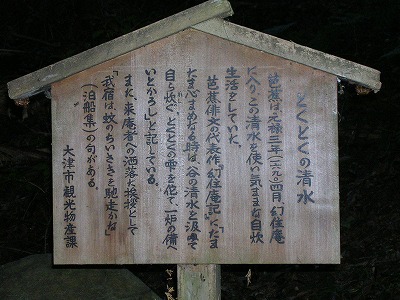 とくとくの清水
芭蕉は元禄三年(一六九〇)四月幻住庵
に入り、この清水を使い気ままな自炊
生活をしていた。
芭蕉俳文の代表作『幻住庵記』に、「たま
たま心まめなる時は、谷の清水を汲みて
自ら炊ぐ。とくとくの雫を侘て、一炉の備へ
いとかろし」と記している。
また、来庵者への洒落た挨拶として
「我宿は蚊のちいさきを馳走かな」
(泊船集)の句がある。
大津市観光物産課